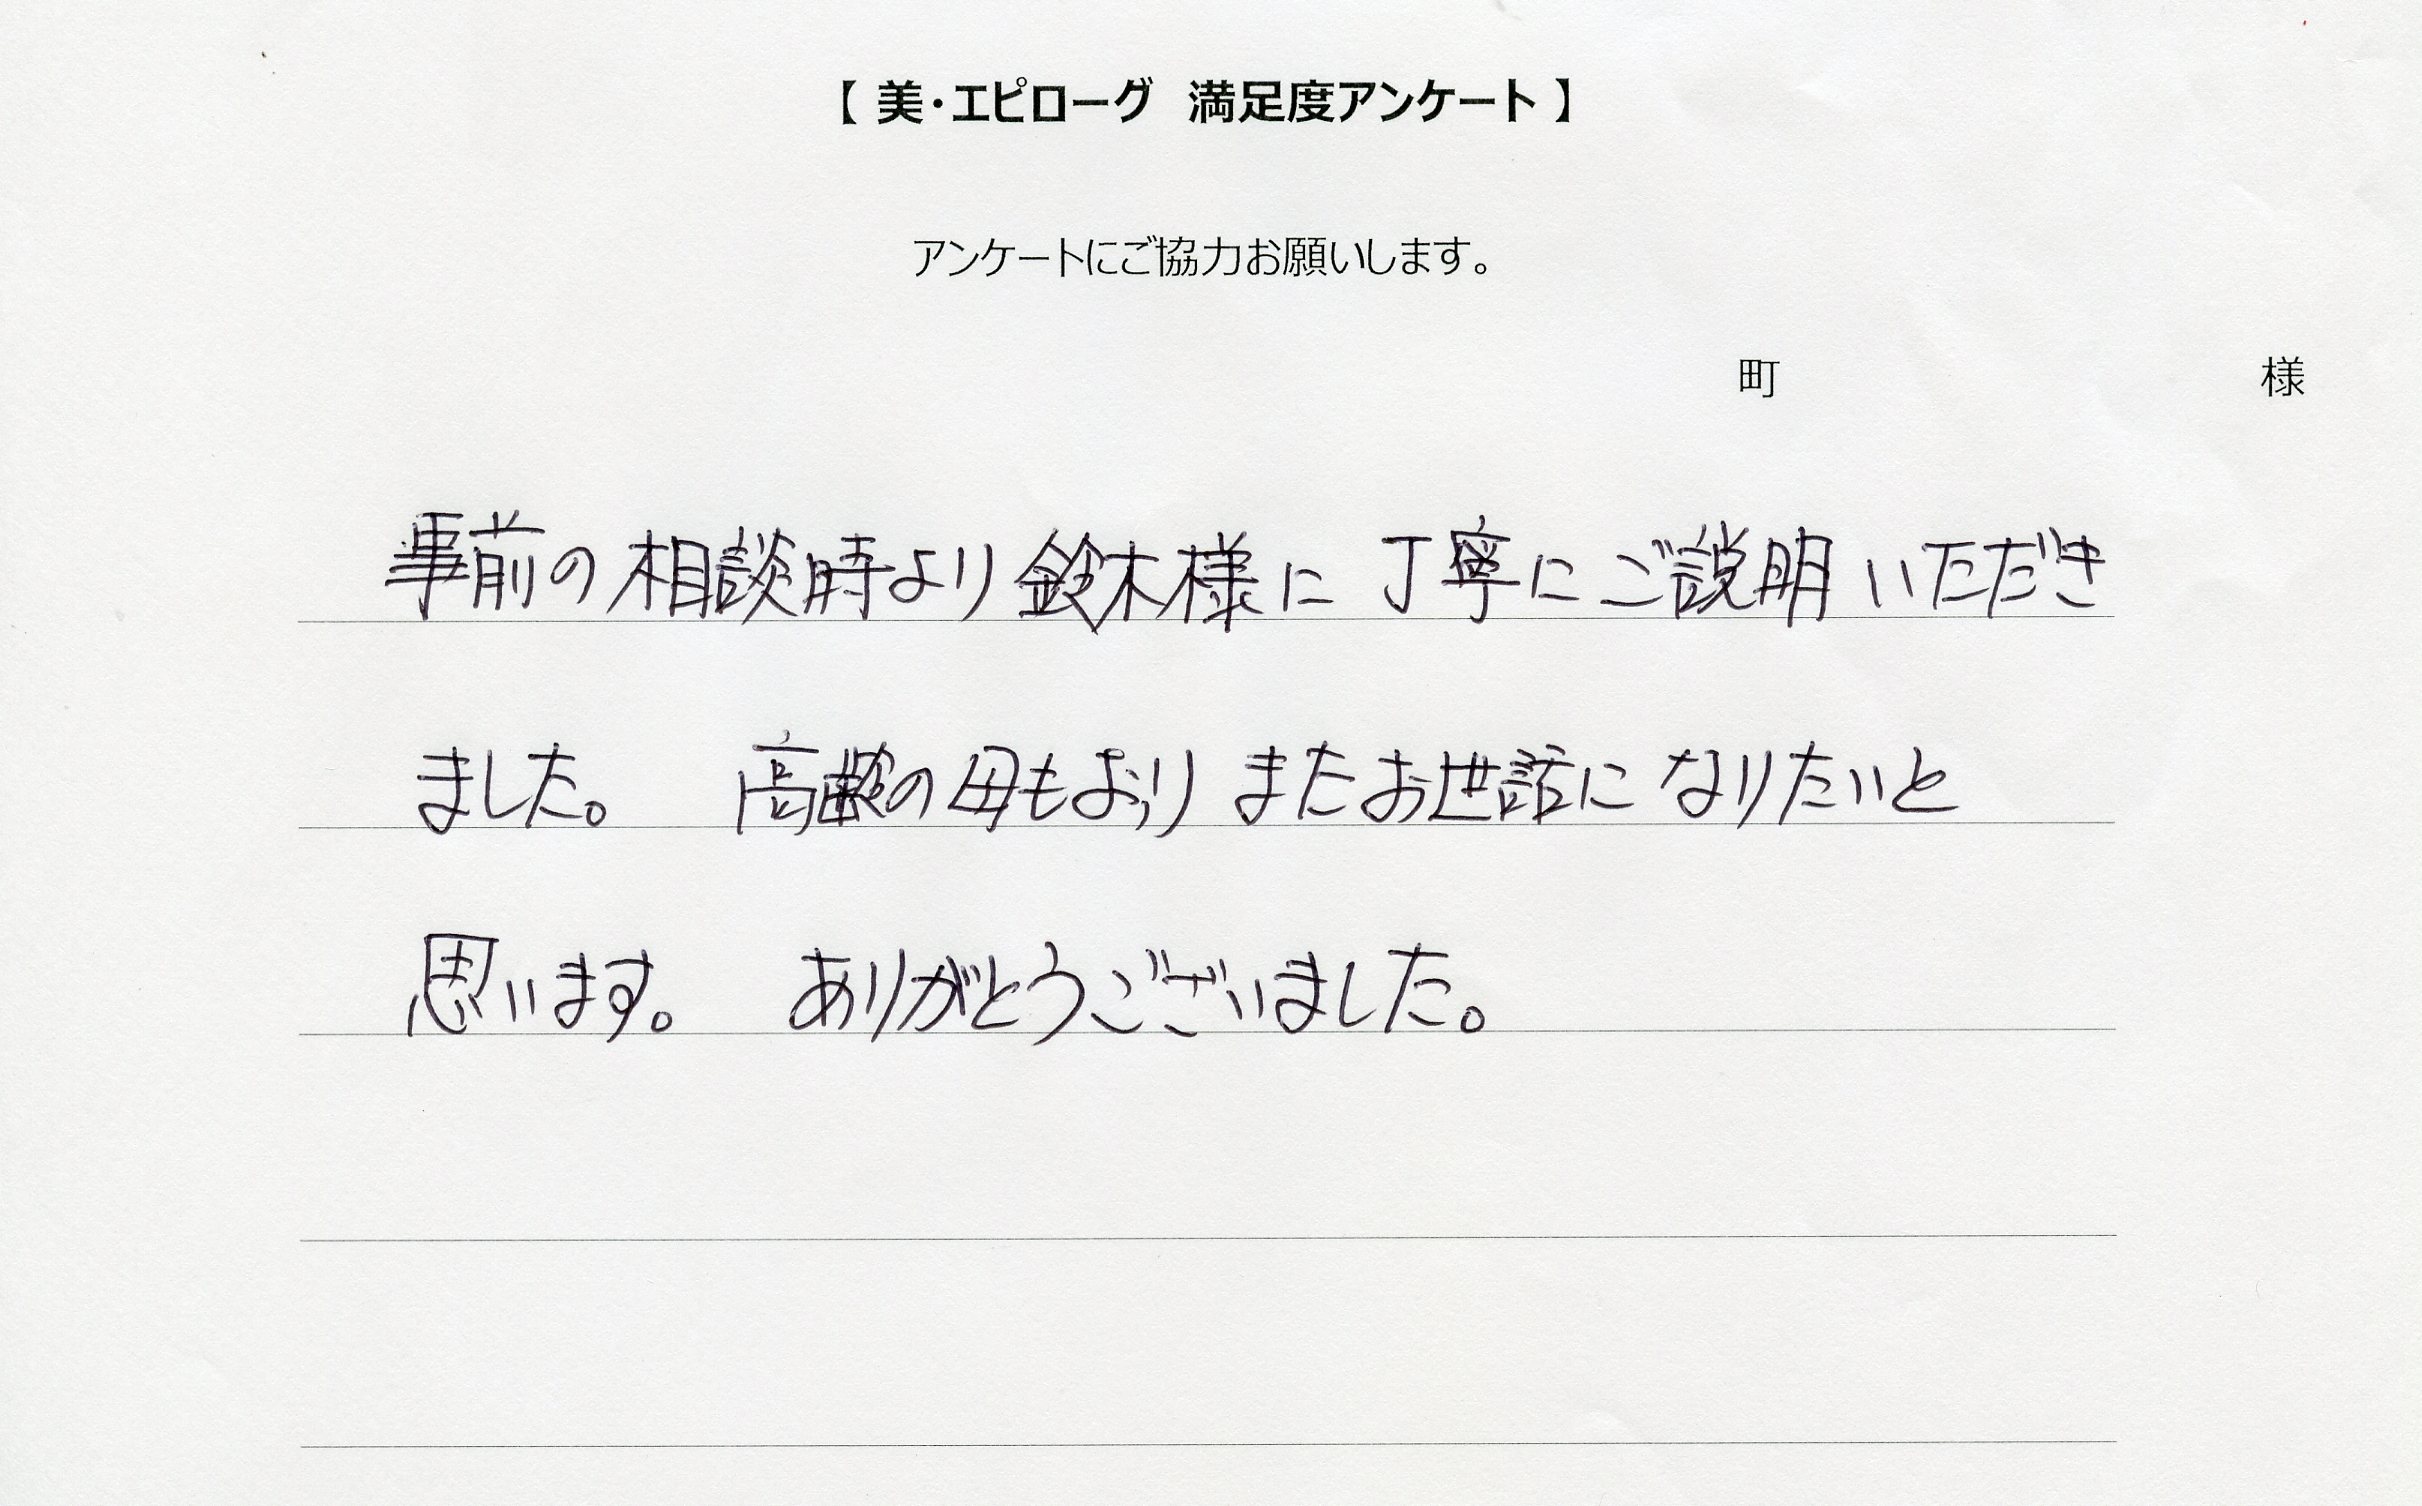 【 美・エピローグ　満足度アンケート 】
アンケートにご協力お願いします。
町　様
事前の相談時より鈴木様に丁寧にご説明いただき
ました。　高齢の母もおりまたお世話になりたいと
思います。　ありがとうございました。